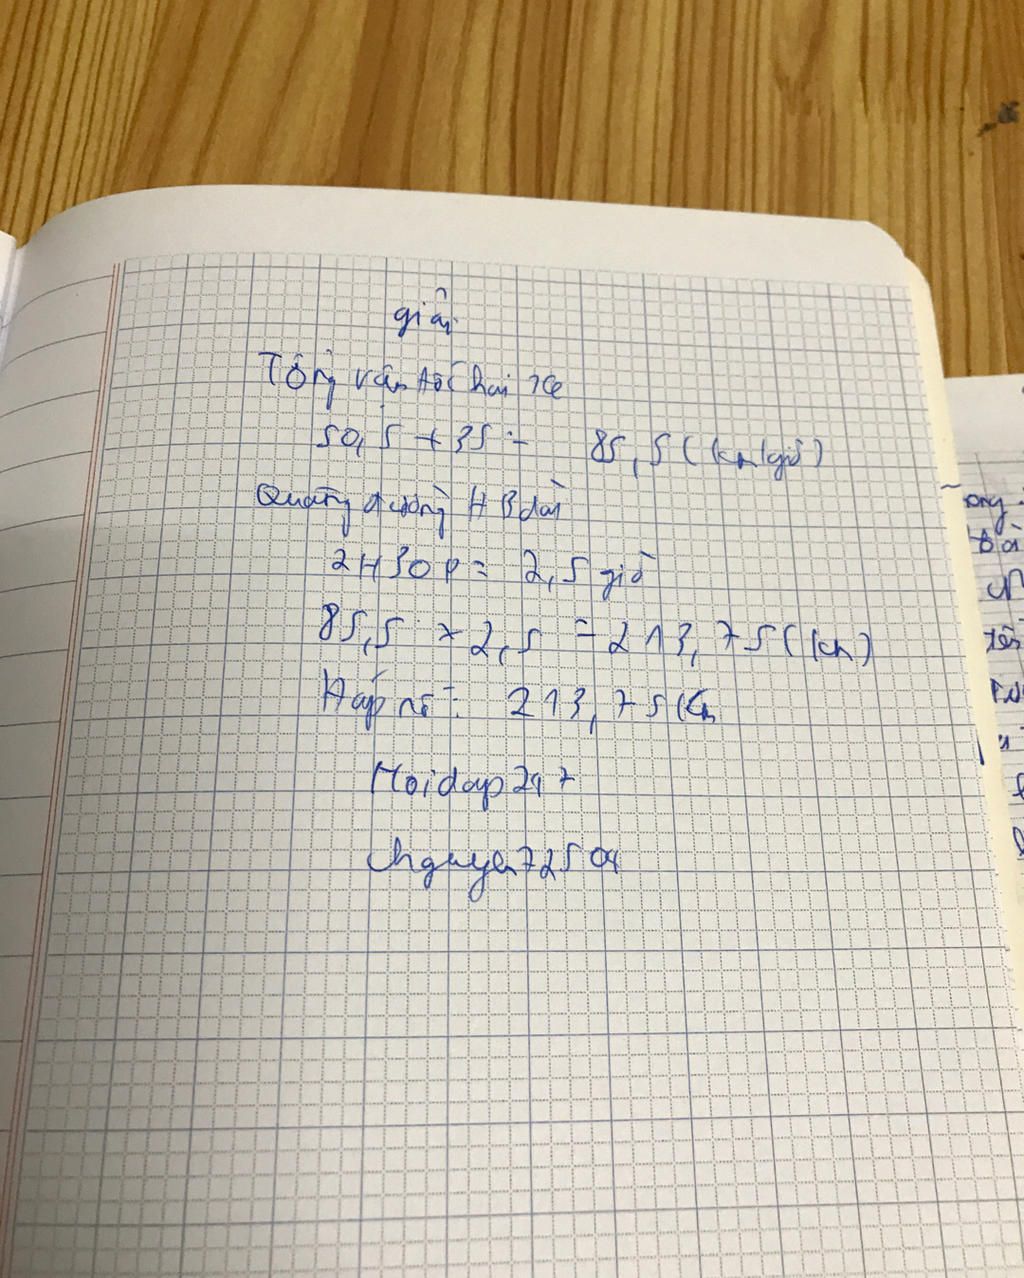 giải
Tổng vận tốc hai xe
50,5 + 35 = 85,5 (km/giờ)
Quãng đường AB dài
2H30P = 2,5 giờ
85,5 x 2,5 = 213,75 (km)
Đáp số: 213,75 km
Hoidap247
chguyen72504
ong